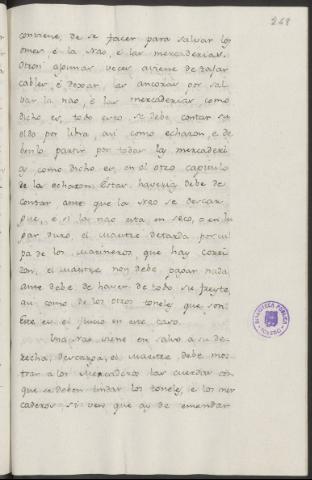 261
conviene, de se facer para salvar los
omes, é la Nao, é las mercaderias.
Otrosi algunas veces aviene de tajar
cables, é dexar, las ancoras por sal-
var la nao, é las mercaderias, como
dicho es, todo esto se debe contar su
eldo por libra, asi como echazon, e de
benlo partir por todas las mercaderi
as como dicho es, en el otro capitulo
de la echazon. Estas haveria debe de
contar ante que la Nao se descar-
gue, é si la nao esta en seco, o en lu
gar duro, el Maestre detarda por cul
pa de los Marineros, que hay corri
zon, el Maestre non debe, pagar nada,
ante debe de haver de todo su freyte,
asi como de los otros toneles que son.
Este es el juicio en este caso.
Una nao viene en salvo a su de-
recha descarga, el Maestre, debe mos-
trar a los Mercaderos las cuerdas con
que se deben tindar los toneles, e los mer
caderos si ven que ay de emendar
BIBLIOTECA PÚBLICA
TOLEDO